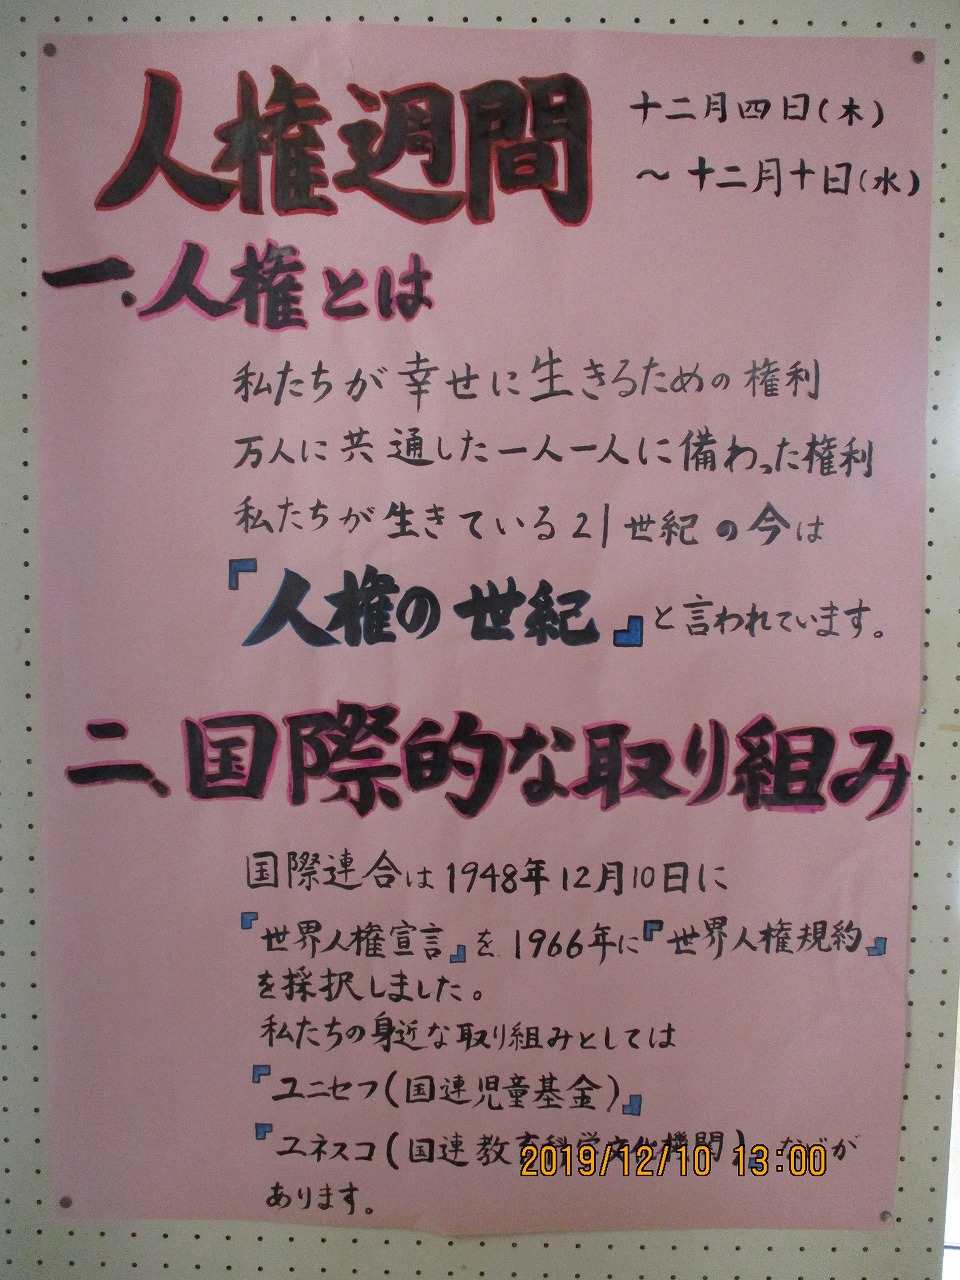 人権週間
十二月四日(木)
〜十二月十日(水)
一.人権とは
私たちが幸せに生きるための権利
万人に共通した一人一人に備わった権利
私たちが生きている21世紀の今は
『人権の世紀』と言われています。
二、国際的な取り組み
国際連合は1948年12月10日に
『世界人権宣言』を1966年に『世界人権規約』
を採択しました。
私たちの身近な取り組みとしては
『ユニセフ(国連児童基金)』
『ユネスコ(国連教育科学文化機関)』などが
あります。
2019/12/10 13:00